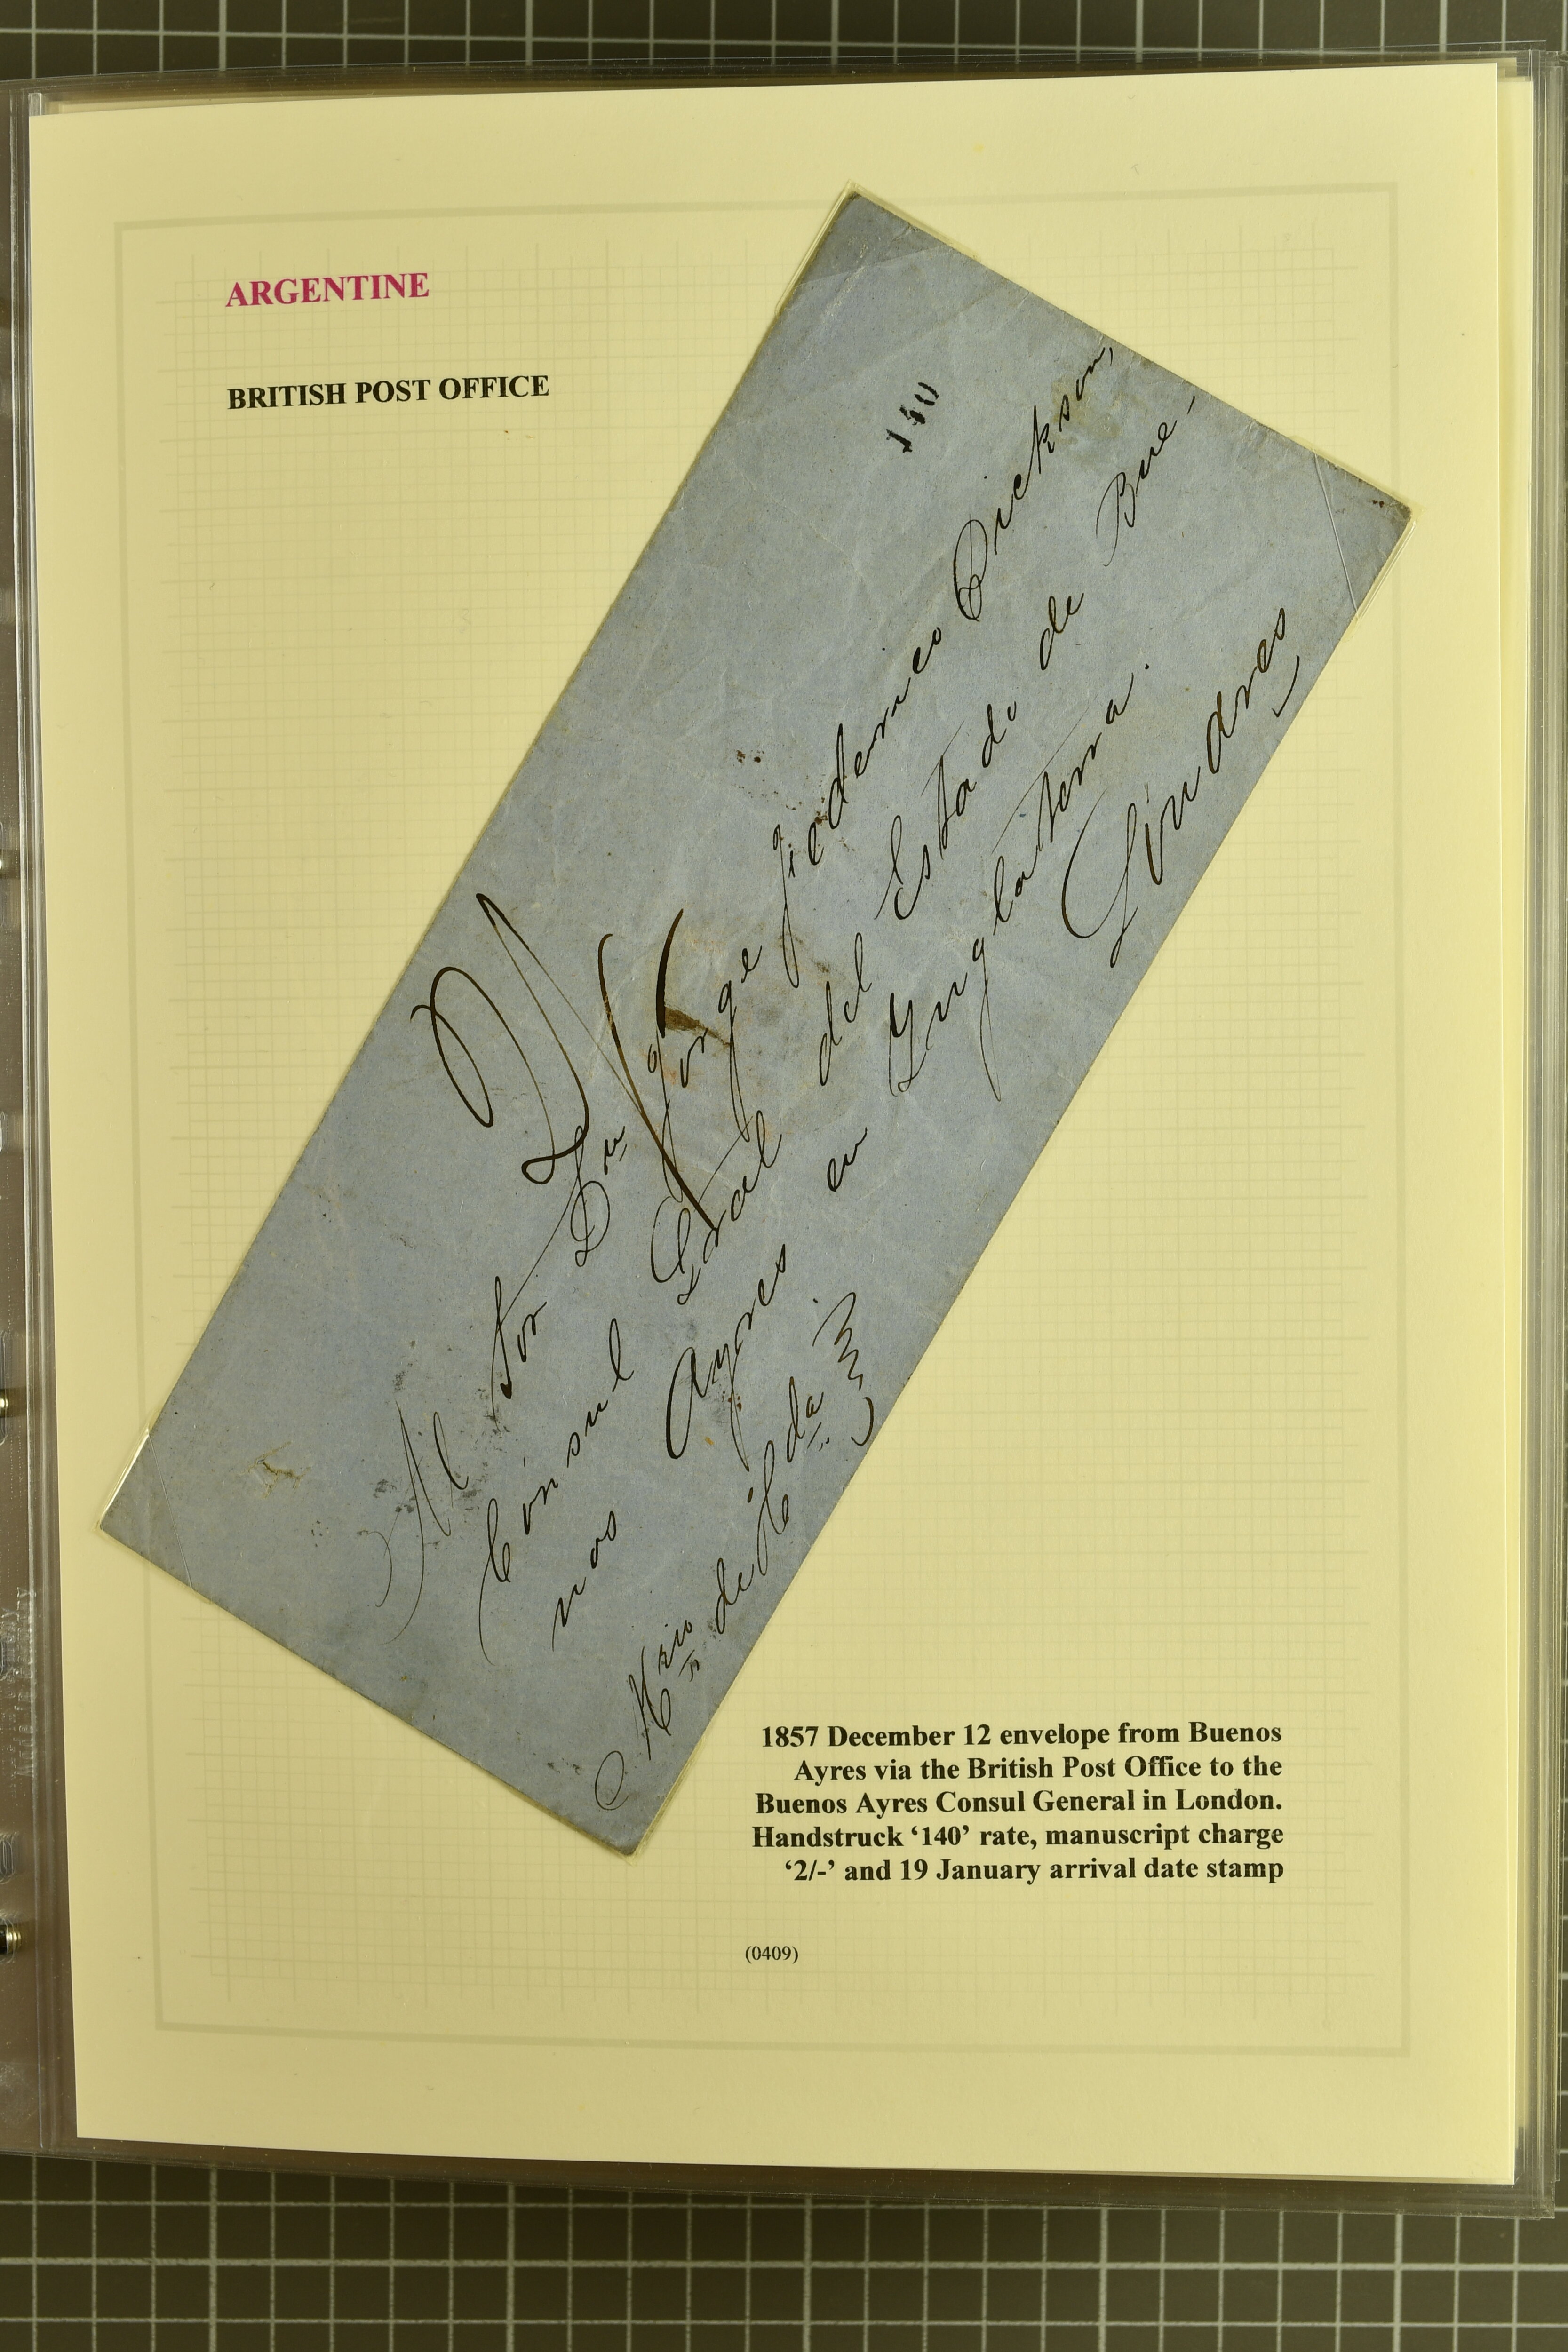 ARGENTINE
BRITISH POST OFFICE
140
2/-
Al Sor Dn Jorge Federico Dickson,
Cónsul Gral del Estado de Bue-
nos Ayres en Inglaterra.
Londres
Mrio de Hda
1857 December 12 envelope from Buenos
Ayres via the British Post Office to the
Buenos Ayres Consul General in London.
Handstruck ‘140’ rate, manuscript charge
‘2/-’ and 19 January arrival date stamp
(0409)